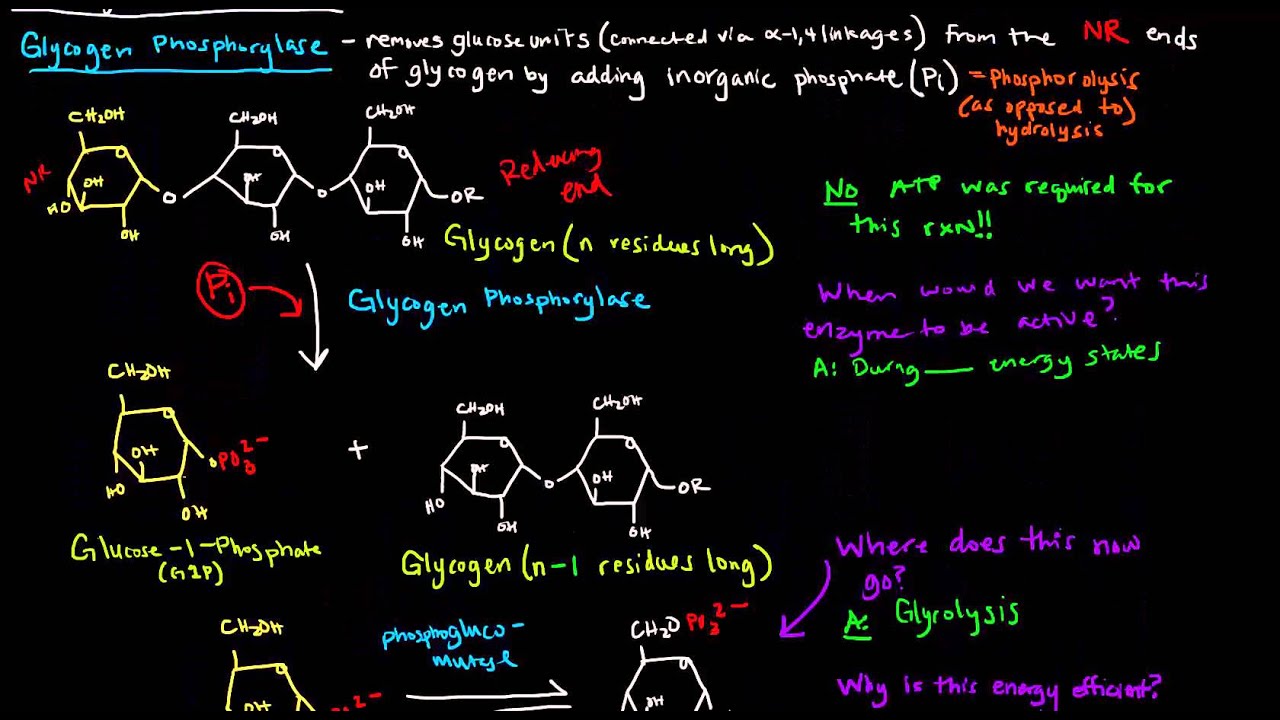 Glycogen Phosphorylase - removes glucose units (connected via α-1,4 linkages) from the NR ends
of glycogen by adding inorganic phosphate (Pi) = Phosphorolysis
(as opposed to)
hydrolysis
CH2OH CH2OH CH2OH
NR OH HO OH O
OH OH O
OH OH OR
Reducing
end
Glycogen (n residues long)
No ATP was required for
this rxn!!
Pi
Glycogen Phosphorylase
When would we want this
enzyme to be active?
A: During ___ energy states
CH2OH
OH HO OH O PO3 2-
+
CH2OH CH2OH
OH HO OH O
OH OH OR
Glucose-1-Phosphate
(G1P)
Glycogen (n-1 residues long)
Where does this now
go?
A: Glycolysis
CH2OH
OH PO3 2-
phosphogluco-
mutase
CH2O PO3 2-
OH
Why is this energy efficient?